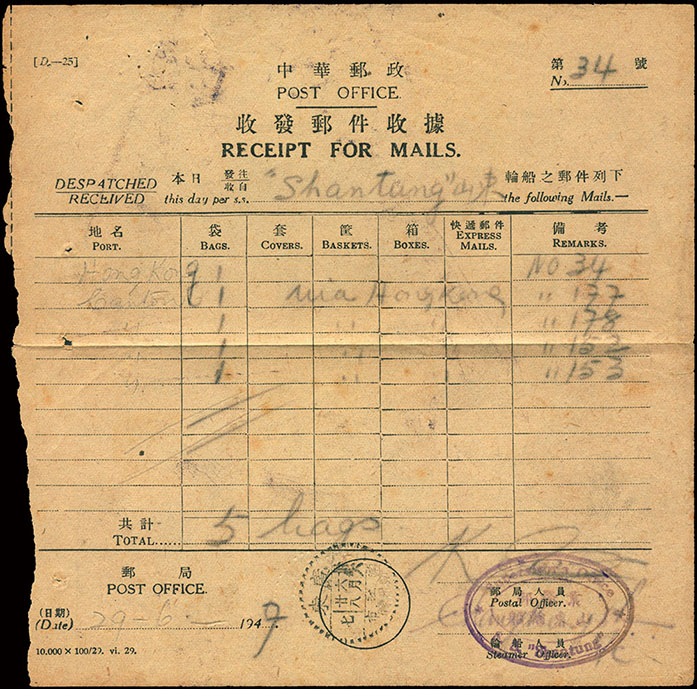 [D.—25]
中華郵政
POST OFFICE.
第 34 號
No.
收發郵件收據
RECEIPT FOR MAILS.
DESPATCHED
RECEIVED
本日 發往 收自 "Shantung" 山東 輪船之郵件列下
this day per s.s. the following Mails.—
地名 袋 套 筐 箱 快遞郵件 備考
PORT. BAGS. COVERS. BASKETS. BOXES. EXPRESS MAILS. REMARKS.
Hong Kong 1 No 34
Canton 1 via Hongkong " 177
" 1 " " " 178
" 1 " " " 152
" 1 " " " 153
共計
TOTAL...... 5 bags
郵局
POST OFFICE.
郵局人員
Postal Officer.
(日期)
(Date) 29-6- 1947
輪船人員
Steamer Officer.
"Shantung"
10,000 × 100/29. vi. 29.